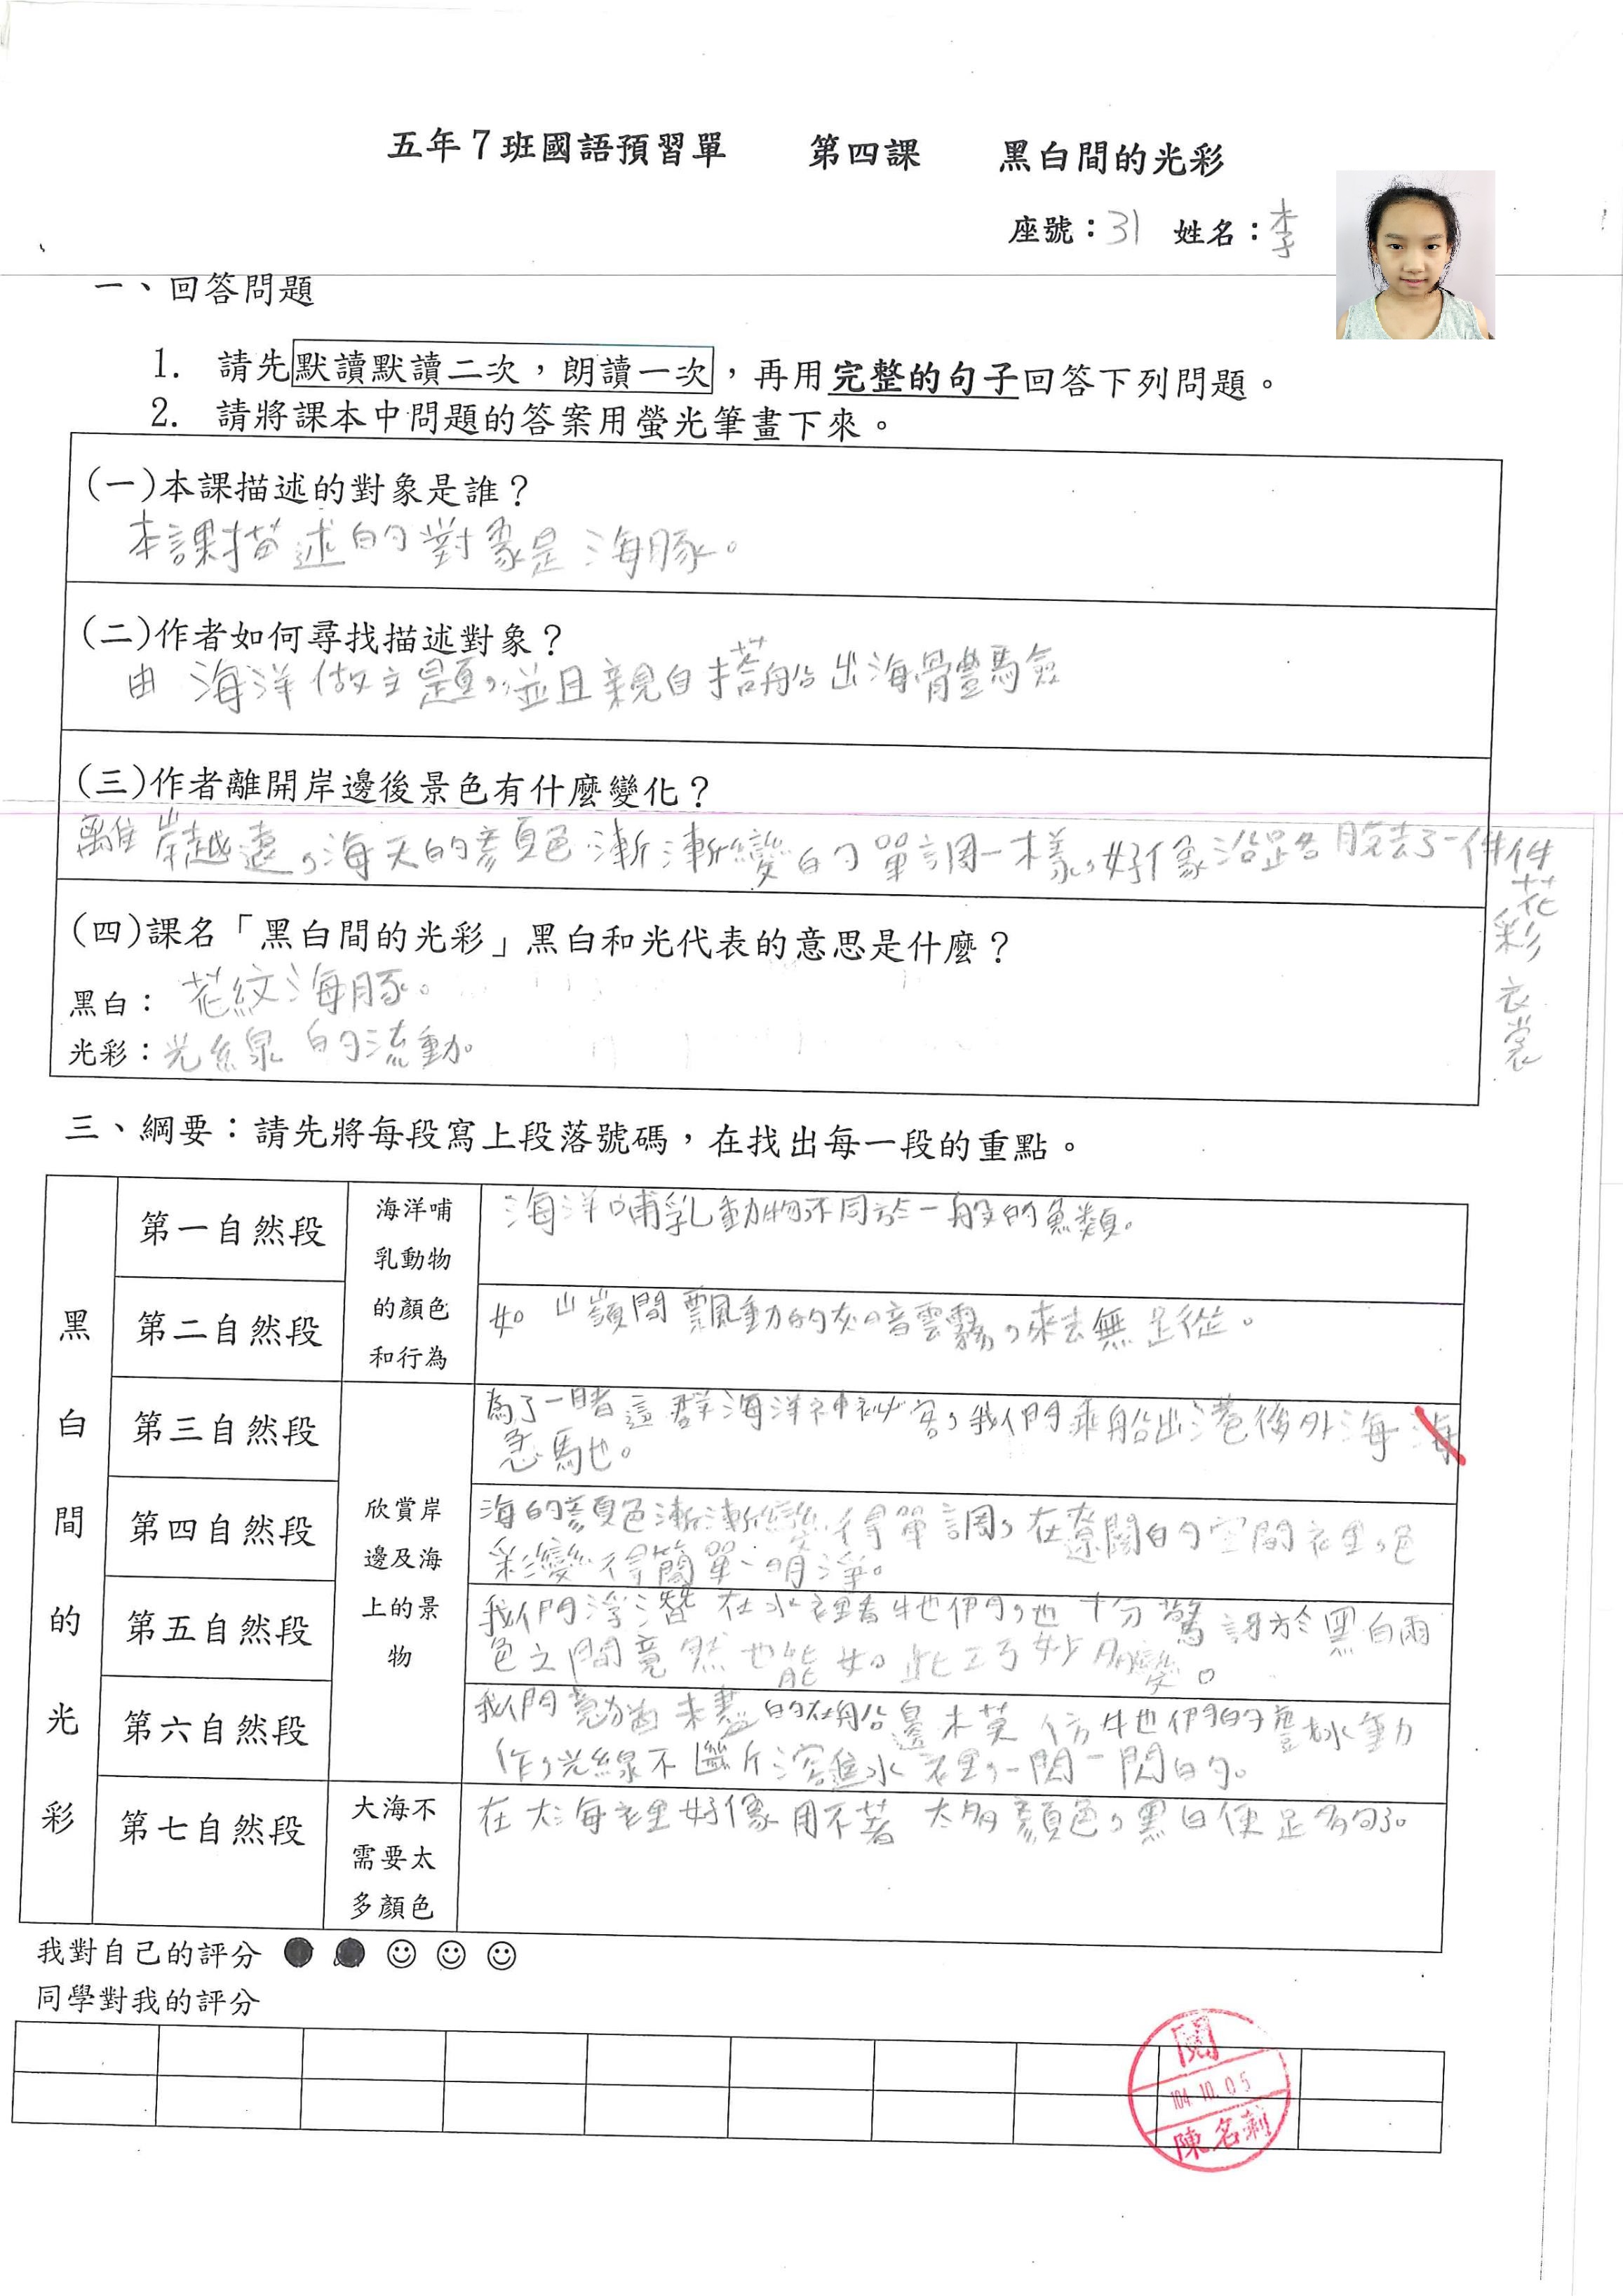 五年7班國語預習單 第四課 黑白間的光彩
座號：31 姓名：李
一、回答問題
1. 請先默讀默讀二次，朗讀一次，再用完整的句子回答下列問題。
2. 請將課本中問題的答案用螢光筆畫下來。
(一)本課描述的對象是誰？
本課描述的對象是海豚。
(二)作者如何尋找描述對象？
由海洋做主題，並且親自搭船出海體驗
(三)作者離開岸邊後景色有什麼變化？
離岸越遠，海天的顏色漸漸變的單調一樣，好像沿路脫去了一件件
花彩衣裳
(四)課名「黑白間的光彩」黑白和光代表的意思是什麼？
黑白：花紋海豚。
光彩：光線的流動。
三、綱要：請先將每段寫上段落號碼，在找出每一段的重點。
黑白間的光彩
第一自然段
海洋哺乳動物的顏色和行為
海洋哺乳動物不同於一般的魚類。
第二自然段
如山嶺間飄動的灰暗雲霧，來去無足從。
第三自然段
欣賞岸邊及海上的景物
為了一睹這群海洋神祕客，我們乘船出港後外海海
急馳。
第四自然段
海的顏色漸漸變得單調，在遼闊的空間裡，色
彩變得簡單、明淨。
第五自然段
我們浮潛在水裡看牠們，也十分驚訝於黑白兩
色之間竟然也能如此巧妙多變。
第六自然段
我們意猶未盡的在船邊模仿牠們的豎水動
作，光線不斷溶進水裡，一閃一閃的。
第七自然段
大海不需要太多顏色
在大海裡好像用不著太多顏色，黑白便足夠。
我對自己的評分
同學對我的評分
閱
104.10.05